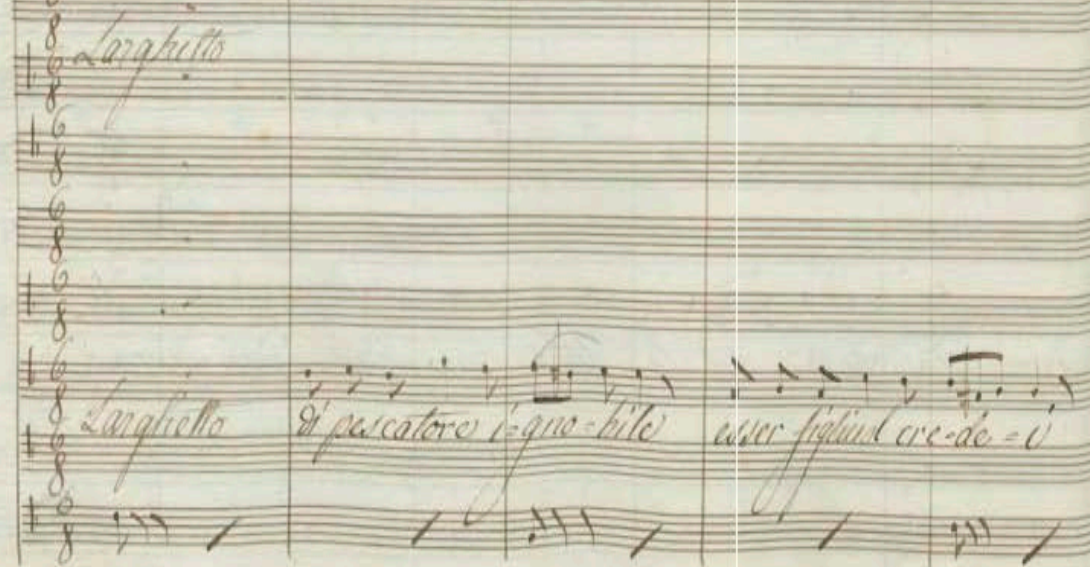 Larghetto
Larghetto di pescatore i=gno=bile esser figliuol cre=de=i